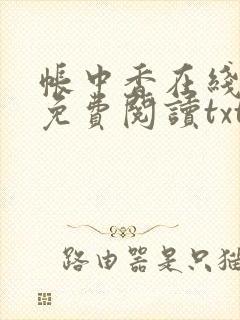 帳中香在綫
免費閱讀txt
路由器是只猫